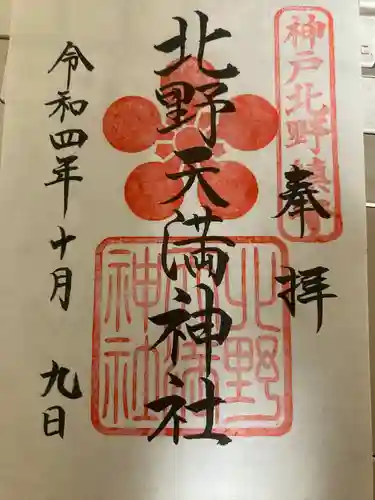 神戸北野鎮守
奉拝
北野天満神社
北野天満神社
令和四年十月九日